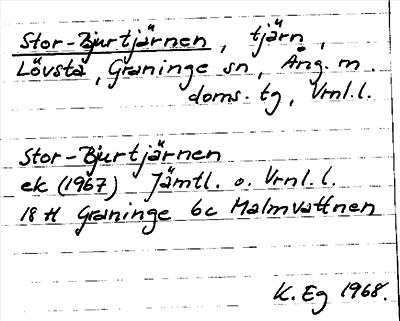 Stor-Bjurtjärnen, tjärn,
Lövsta, Graninge sn, Ång. m.
doms. tg, Vrnl.l.
Stor-Bjurtjärnen
ek (1967) Jämtl. o. Vrnl. l.
18 H Graninge 6c Malmvattnen
K. Eg 1968.